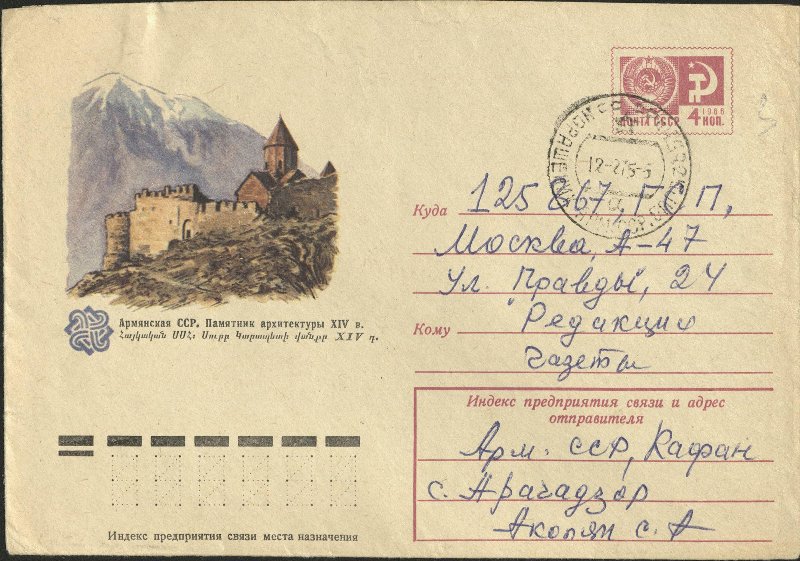 1966
ПОЧТА СССР 4 КОП.
12-2
Куда 125867, ГСП,
Москва, А-47
ул. Правды, 24
Кому "Редакция
газеты
Армянская ССР. Памятник архитектуры XIV в.
Հայկական ՍՍՀ։ Սուրբ Կարապետի վանքը XIV դ.
Индекс предприятия связи и адрес
отправителя
Арм. ССР, Кафан
с. Арачадзор
Акопян С. А
Индекс предприятия связи места назначения